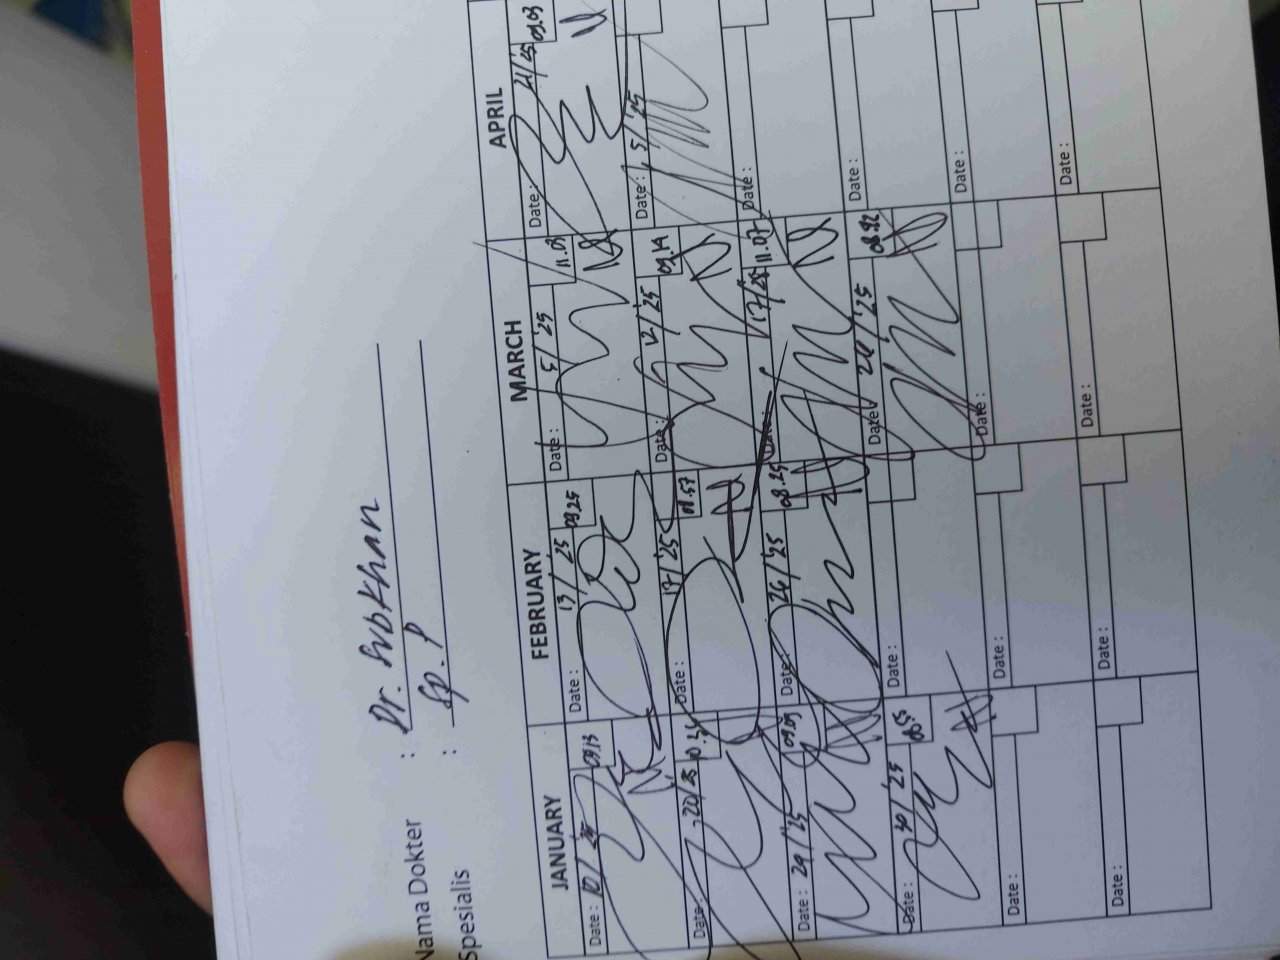 Nama Dokter : Dr. Subkhan
Spesialis : Sp. P
JANUARY FEBRUARY MARCH APRIL
Date : 10/ 25 09.13 Date : 13/ 25 09.25 Date : 5/ '25 11.09 Date : 21/ 25 09.03
Date : 20/ 25 Date : 17/ '25 Date : 12/ '25 09.14 Date : 5/ '25
Date : 24/ '25 09.09 Date : 24/ '25 08.25 Date : 17/ 25 11.07 Date :
Date : 30/ '25 Date : Date : 24/ '25 Date :
Date : Date : Date : Date :
Date : Date : Date : Date :